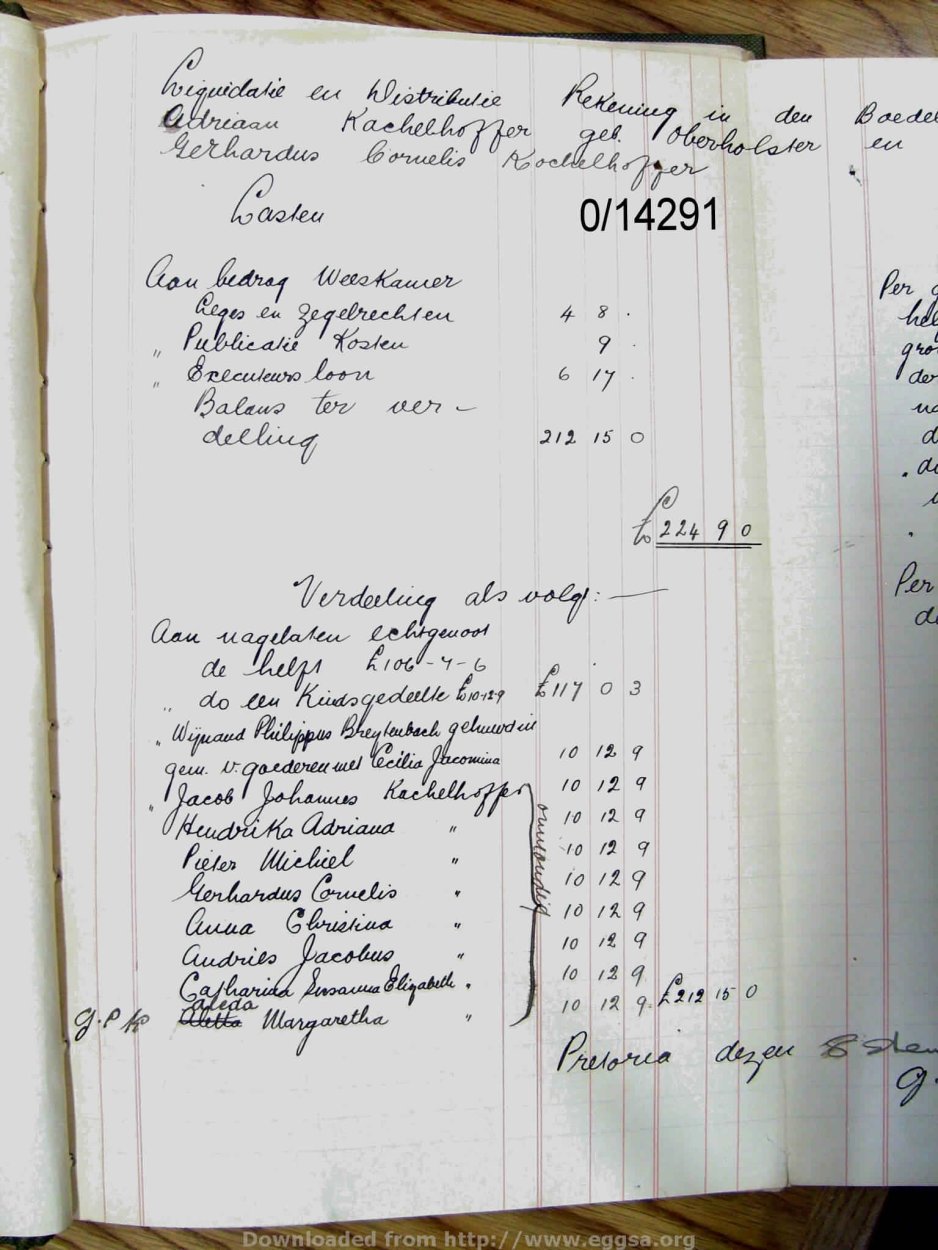 Liquidatie en Distributie Rekening in den Boedel
Adriaan Kachelhoffer geb. Oberholster en
Gerhardus Cornelis Kochelhoffer
Lasten
0/14291
Aan bedrag Weeskamer
Leges en Zegelrechten 4 8 .
" Publicatie Kosten 9 .
" Executeurs loon 6 17 .
Balans ter ver-
deeling 212 15 0
£ 224 9 0
Verdeeling als volg: —
Aan nagelaten echtgenoot
de helft £106-7-6
" do een Kindsgedeelte £10-12-9 £117 0 3
" Wijnand Philippus Breytenbach gehuwd in
gem. v. goederen met Cecilia Jacomina 10 12 9
" Jacob Johannes Kachelhoffer 10 12 9
Hendrika Adriana " 10 12 9
Pieter Michiel " 10 12 9
Gerhardus Cornelis " 10 12 9
Anna Christina " 10 12 9
Andries Jacobus " 10 12 9
Catharina Susanna Elizabeth " 10 12 9
Aleda
g.P Aletta Margaretha " 10 12 9 £212 15 0
onmondig
Pretoria dezen 8sten
g.
Per
hee
gro
der
na
d
. di
Per
de
Downloaded from http://www.eggsa.org